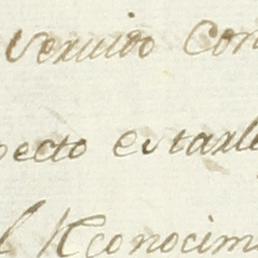 Veruido Con
pecto estarle
l Reconocim